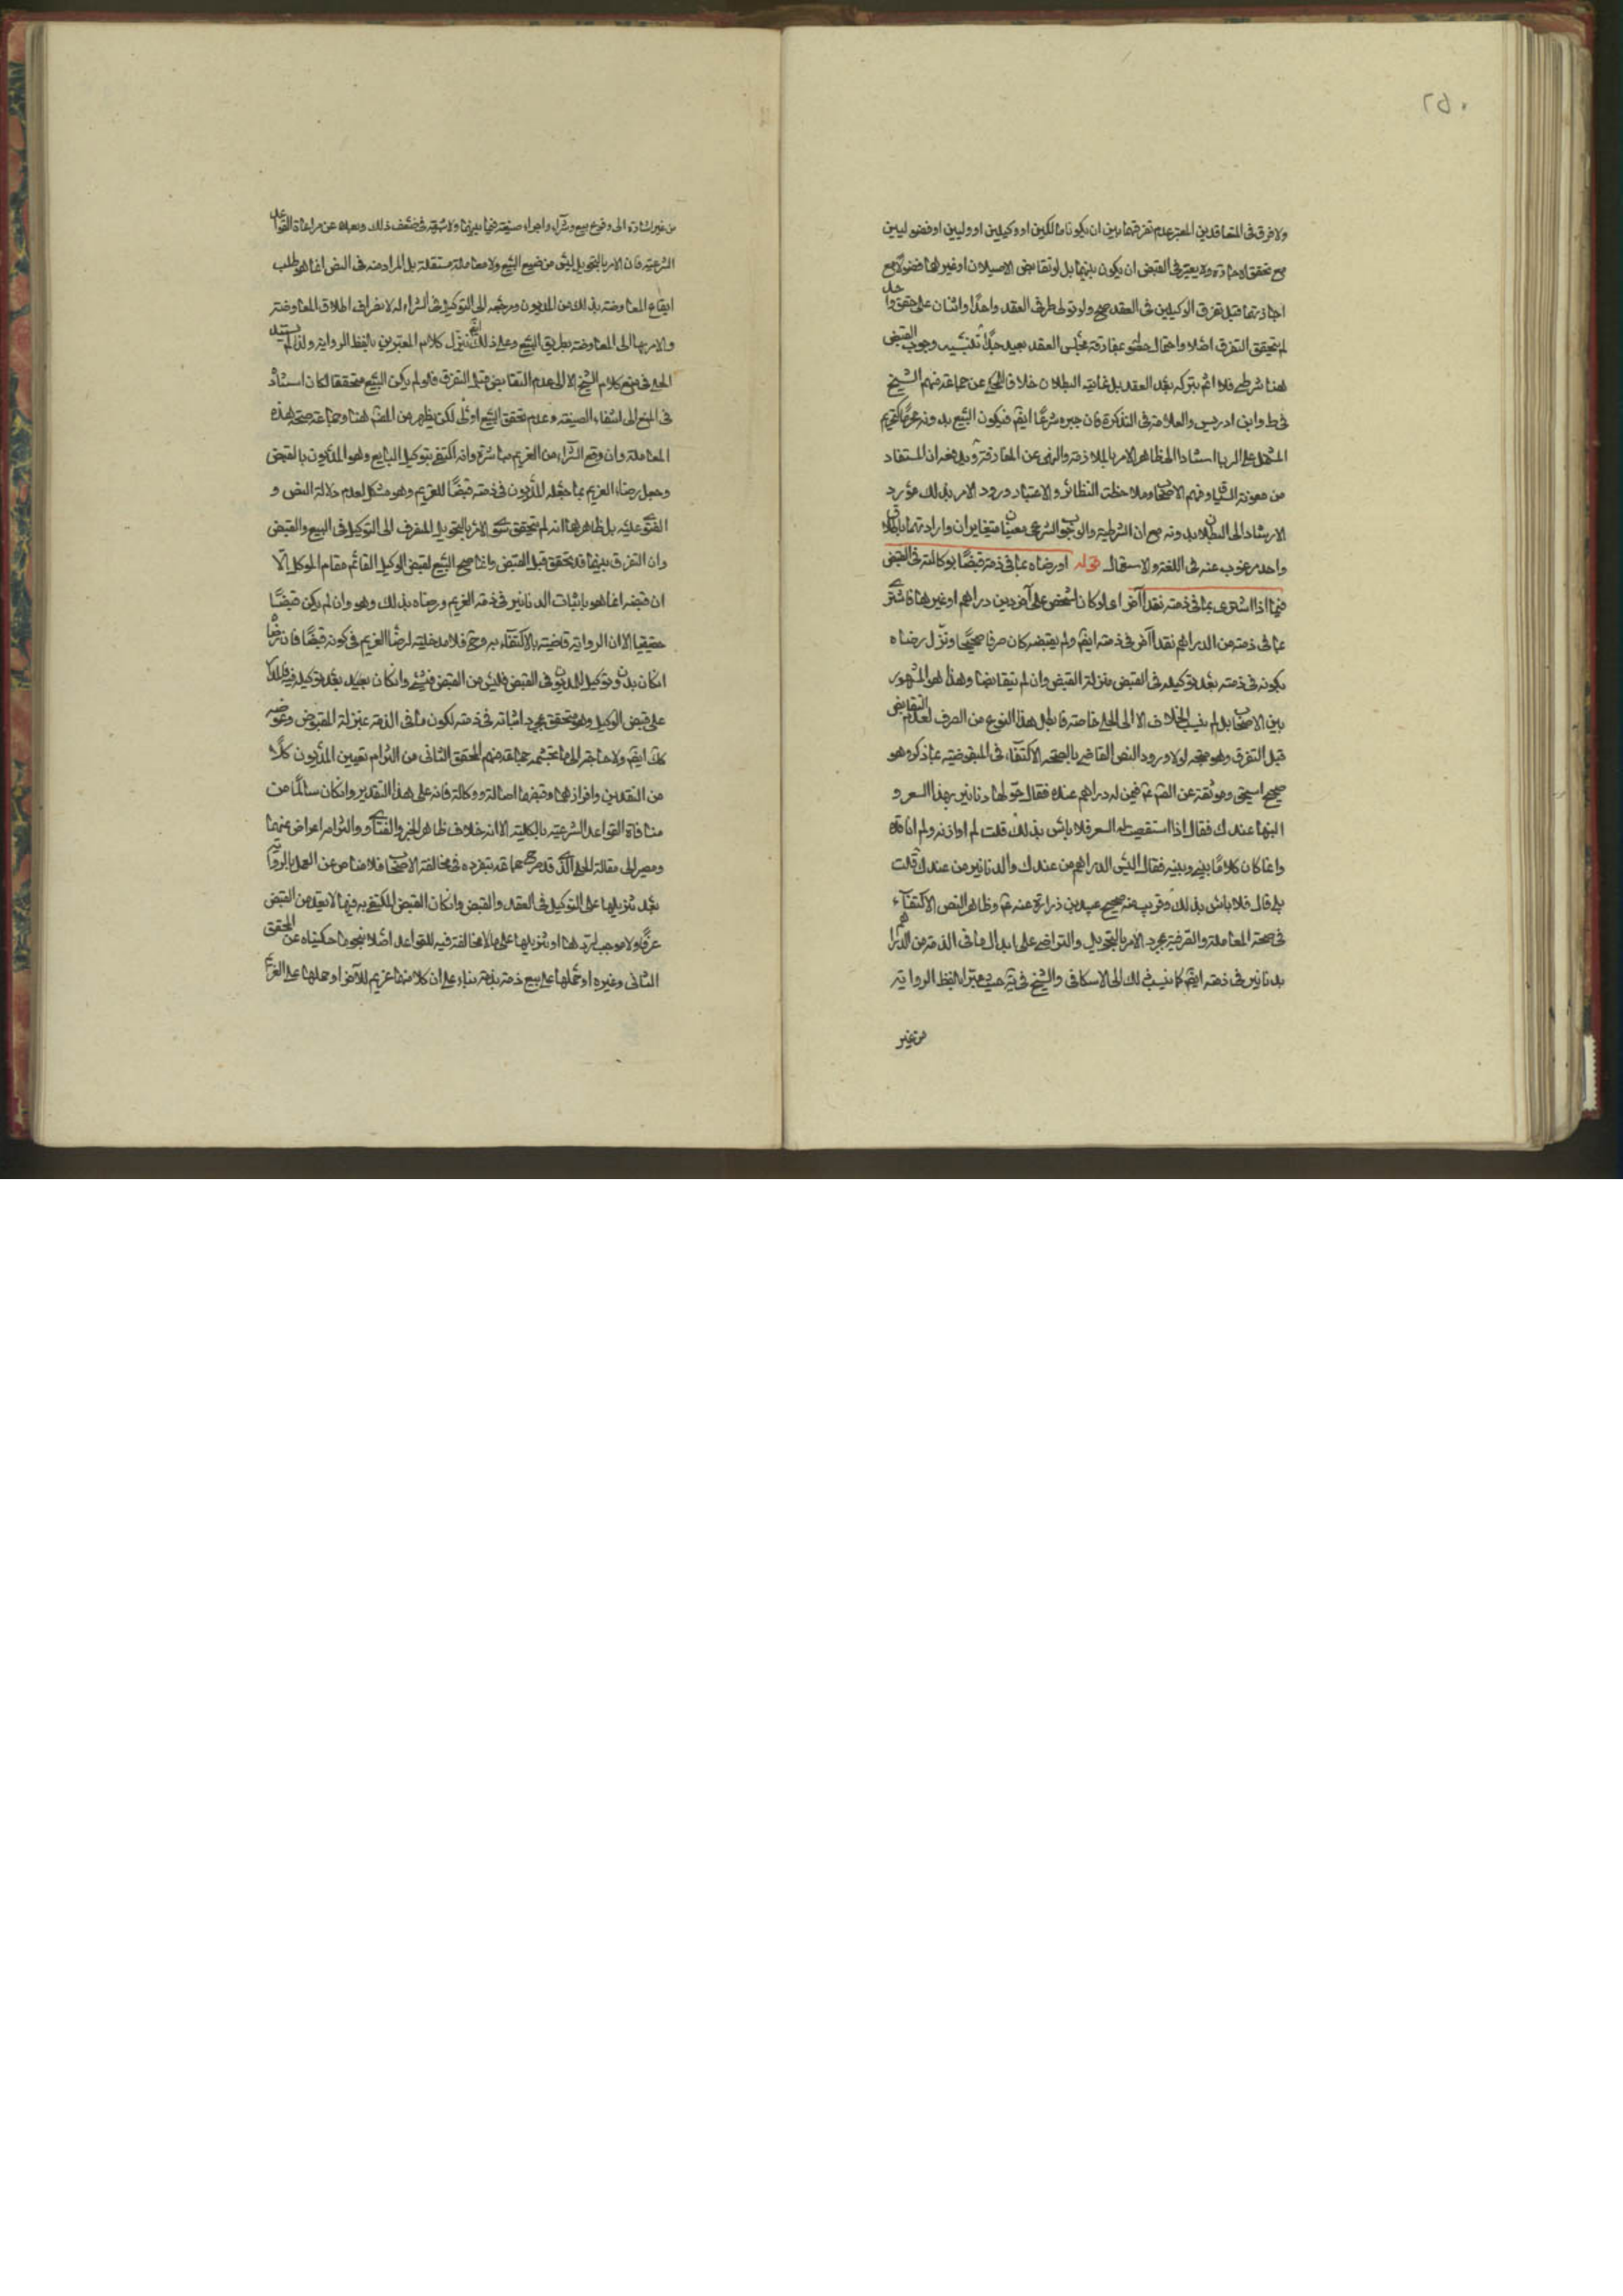 ٢٥٠
ولا فرق فى المتعاقدين المعتبر عدم تفرقهما بين ان يكونا مالكين او وكيلين او وليين او فضوليين
مع تحقق الاجازة ولا يعتبر فى القبض ان يكون بينهما بل لو تقابض الاصيلان او غيرهما فضولا مع
اجازتهما قبل تفرق الوكيلين فى العقد صح ولو تولى طرفى العقد واحدا واثنان على حقو واحد
لم يتحقق التفرق اصلا واحتمال بمفارقة مجلس العقد بعيد جدا تنبيه وجوب القبض
هنا شرطى فلا اثم بتركه بعد العقد بل غايته البطلان خلافا للمحكى عن جماعة منهم الشيخ
فى ط وابن ادريس والعلامة فى التذكرة فان جبره شرعا ايض فيكون البيع بدونه محرما كتحريم
المشتمل على الربا استنادا الى ظاهر الامر بالملازمة والنهى عن المفارقة ويدفعه ان المستفاد
من معونة السياق وفهم الاصحاب وملاحظة النظائر والاعتبار ورود الامر بذلك مورد
الارشاد الى البطلان بدونه مع ان الشرطية والوجوب الشرعى معنيان متغايران وارادتهما باطلاق
واحد مرغوب عنه فى اللغة والاستعمال قوله او رضاه بما فى ذمته قبضا بوكالته فى القبض
فيما اذا اشترى بما فى ذمته نقدا آخر اى لو كان لشخص على آخر دين دراهم او غيرها فاشترى
بما فى ذمته من الدراهم نقدا آخر فى ذمته ايض ولم يقبضه كان صرفا صحيحا ونزل رضاه
بكونه فى ذمته بعد توكيله فى القبض منزلة القبض وان لم يتقابضا وهذا هو المشهور
بين الاصحاب بل لم ينسب الخلاف الا الى الحلى خاصة فابطل هذا النوع من الصرف لعدم التقابض
قبل التفرق وهو متجه لولا ورود النص القاضى بالصحة الاكتفاء فى المقبوضية بما ذكر وهو
صحيح اسحق وموثقه عن الصم ع فيمن له دراهم عنده فقال حولها دنانير بهذا السعر و
اثبتها عندك فقال اذا استقصيت له السعر فلا باس بذلك قلت لم اوازنه ولم اناقده
وانما كان كلاما بينى وبينه فقال اليس الدراهم من عندك والدنانير من عندك قلت
بلى قال فلا باس بذلك وقريب منه صحيح عبيد بن زرارة عنه ع وظاهر النص الاكتفاء
فى صحة المعاملة والصرفية بمجرد الامر بالتحويل والتراضى على ابدال ما فى الذمة من الدراهم
بدنانير فى ذمته ايض كما ينسب ذلك الى الاسكافى والشيخ فى يه حيث عبرا بلفظ الرواية
من غير
من غير اشارة الى وقوع بيع وشراء واجراء صيغة فيما بينهما ولا شبهة فى ضعف ذلك وبعده عن مراعاة القواعد
الشرعية فان الامر بالتحويل ليس من صيغ البيع ولا معاملة مستقلة بل المراد منه فى النص انما هو طلب
ايقاع المعاوضة بذلك من المديون ومرجعه الى التوكيل فى الشراء له لانصراف اطلاق المعاوضة
والامر بها الى المعاوضة بطريق البيع وعلى ذلك ايض ينزل كلام المعبرين بلفظ الرواية ولذا لم يستند
الحلى فى منع كلام الشيخ الا الى عدم التقابض قبل التفرق فلو لم يكن البيع متحققا لكان استناد
فى المنع الى انتفاء الصيغة وعدم تحقق البيع اولى لكن يظهر من المص هنا وجماعة صحة هذه
المعاملة وان وقع الشراء من الغريم مباشرة وانه اكتفى بتوكيل البايع وهو المديون بالقبض
وجعل رضاء الغريم بما جعله المديون فى ذمته قبضا للغريم وهو مشكل لعدم دلالة النص و
الفتوى عليه بل ظاهرهما انه لم يتحقق سوى الامر بالتحويل المنصرف الى التوكيل فى البيع والقبض
وان التفرق بينهما قد تحقق قبل القبض وانما صح البيع لقبض الوكيل القائم مقام الموكل الا
ان قبضه انما هو باثبات الدنانير فى ذمة الغريم ورضاه بذلك وهو وان لم يكن قبضا
حقيقيا الا ان الرواية قاضية بالاكتفاء به وح فلا مدخلية لرضا الغريم فى كونه قبضا فان رضاه
انكان بدون توكيل المديون فى القبض فليس من القبض فى شئ وانكان بعيد بعد توكيله
على قبض الوكيل وهو متحقق بمجرد اثباته فى ذمته لكون ما فى الذمة بمنزلة المقبوض وعوضه
كك ايض ولا حاجة الى ما تجشمه جماعة منهم المحقق الثانى من التزام تعيين المديون كلا
من النقدين وافرازهما وقبضها اصالة ووكالة فانه على هذا التقدير وانكان سالما من
منافاة القواعد الشرعية بالكلية الا انه خلاف ظاهر الخبر والفتاوى والتزامه اعراض عنهما
ومصير الى مقالة الحلى الذى قد صرح جماعة بتفرده فى مخالفة الاصحاب فلا مناص عن العمل بالرواية
بعد تنزيلها على التوكيل فى العقد والقبض وانكان القبض المكتفى به فيها لا يعد من القبض
عرفا ولا موجب لردها او تنزيلها على ما لا مخالفة فيه للقواعد اصلا بنحو ما حكيناه عن المحقق
الثانى وغيره او حملها على بيع ذمة بذمة بناء على ان كلا منهما غريم للآخر او حملها على